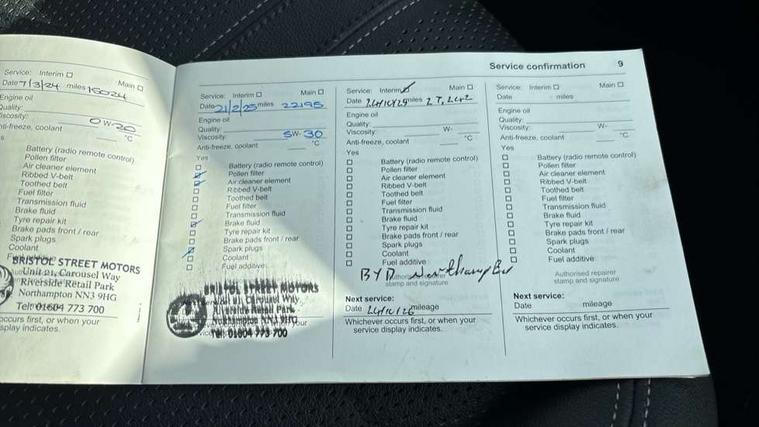 Service confirmation 9
Service: Interim Main
Date 7/3/24 miles 16024
Engine oil
Quality:
Viscosity: 0W-20
Anti-freeze, coolant °C
Battery (radio remote control)
Pollen filter
Air cleaner element
Ribbed V-belt
Toothed belt
Fuel filter
Transmission fluid
Brake fluid
Tyre repair kit
Brake pads front / rear
Spark plugs
Coolant
BRISTOL STREET MOTORS
Unit 21, Carousel Way
Riverside Retail Park
Northampton NN3 9HG
Tel: 01604 773 700
occurs first, or when your
display indicates.
Service: Interim Main
Date 21/2/25 miles 22195
Engine oil
Quality
Viscosity: 5W-30
Anti-freeze, coolant °C
Yes
Battery (radio remote control)
Pollen filter
Air cleaner element
Ribbed V-belt
Toothed belt
Fuel filter
Transmission fluid
Brake fluid
Tyre repair kit
Brake pads front / rear
Spark plugs
Coolant
Fuel additive
BRISTOL STREET MOTORS
Carousel Way
Riverside Retail Park
Northampton NN3 9HG
Tel: 01604 773 700
Service: Interim Main
Date miles
Engine oil
Quality:
Viscosity: W-
Anti-freeze, coolant °C
Yes
Battery (radio remote control)
Pollen filter
Air cleaner element
Ribbed V-belt
Toothed belt
Fuel filter
Transmission fluid
Brake fluid
Tyre repair kit
Brake pads front / rear
Spark plugs
Coolant
Fuel additive
BYD Northampton
stamp and signature
Next service:
Date mileage
Whichever occurs first, or when your
service display indicates.
Service: Interim Main
Date miles
Engine oil
Quality:
Viscosity: W-
Anti-freeze, coolant °C
Yes
Battery (radio remote control)
Pollen filter
Air cleaner element
Ribbed V-belt
Toothed belt
Fuel filter
Transmission fluid
Brake fluid
Tyre repair kit
Brake pads front / rear
Spark plugs
Coolant
Fuel additive
Authorised repairer
stamp and signature
Next service:
Date mileage
Whichever occurs first, or when your
service display indicates.